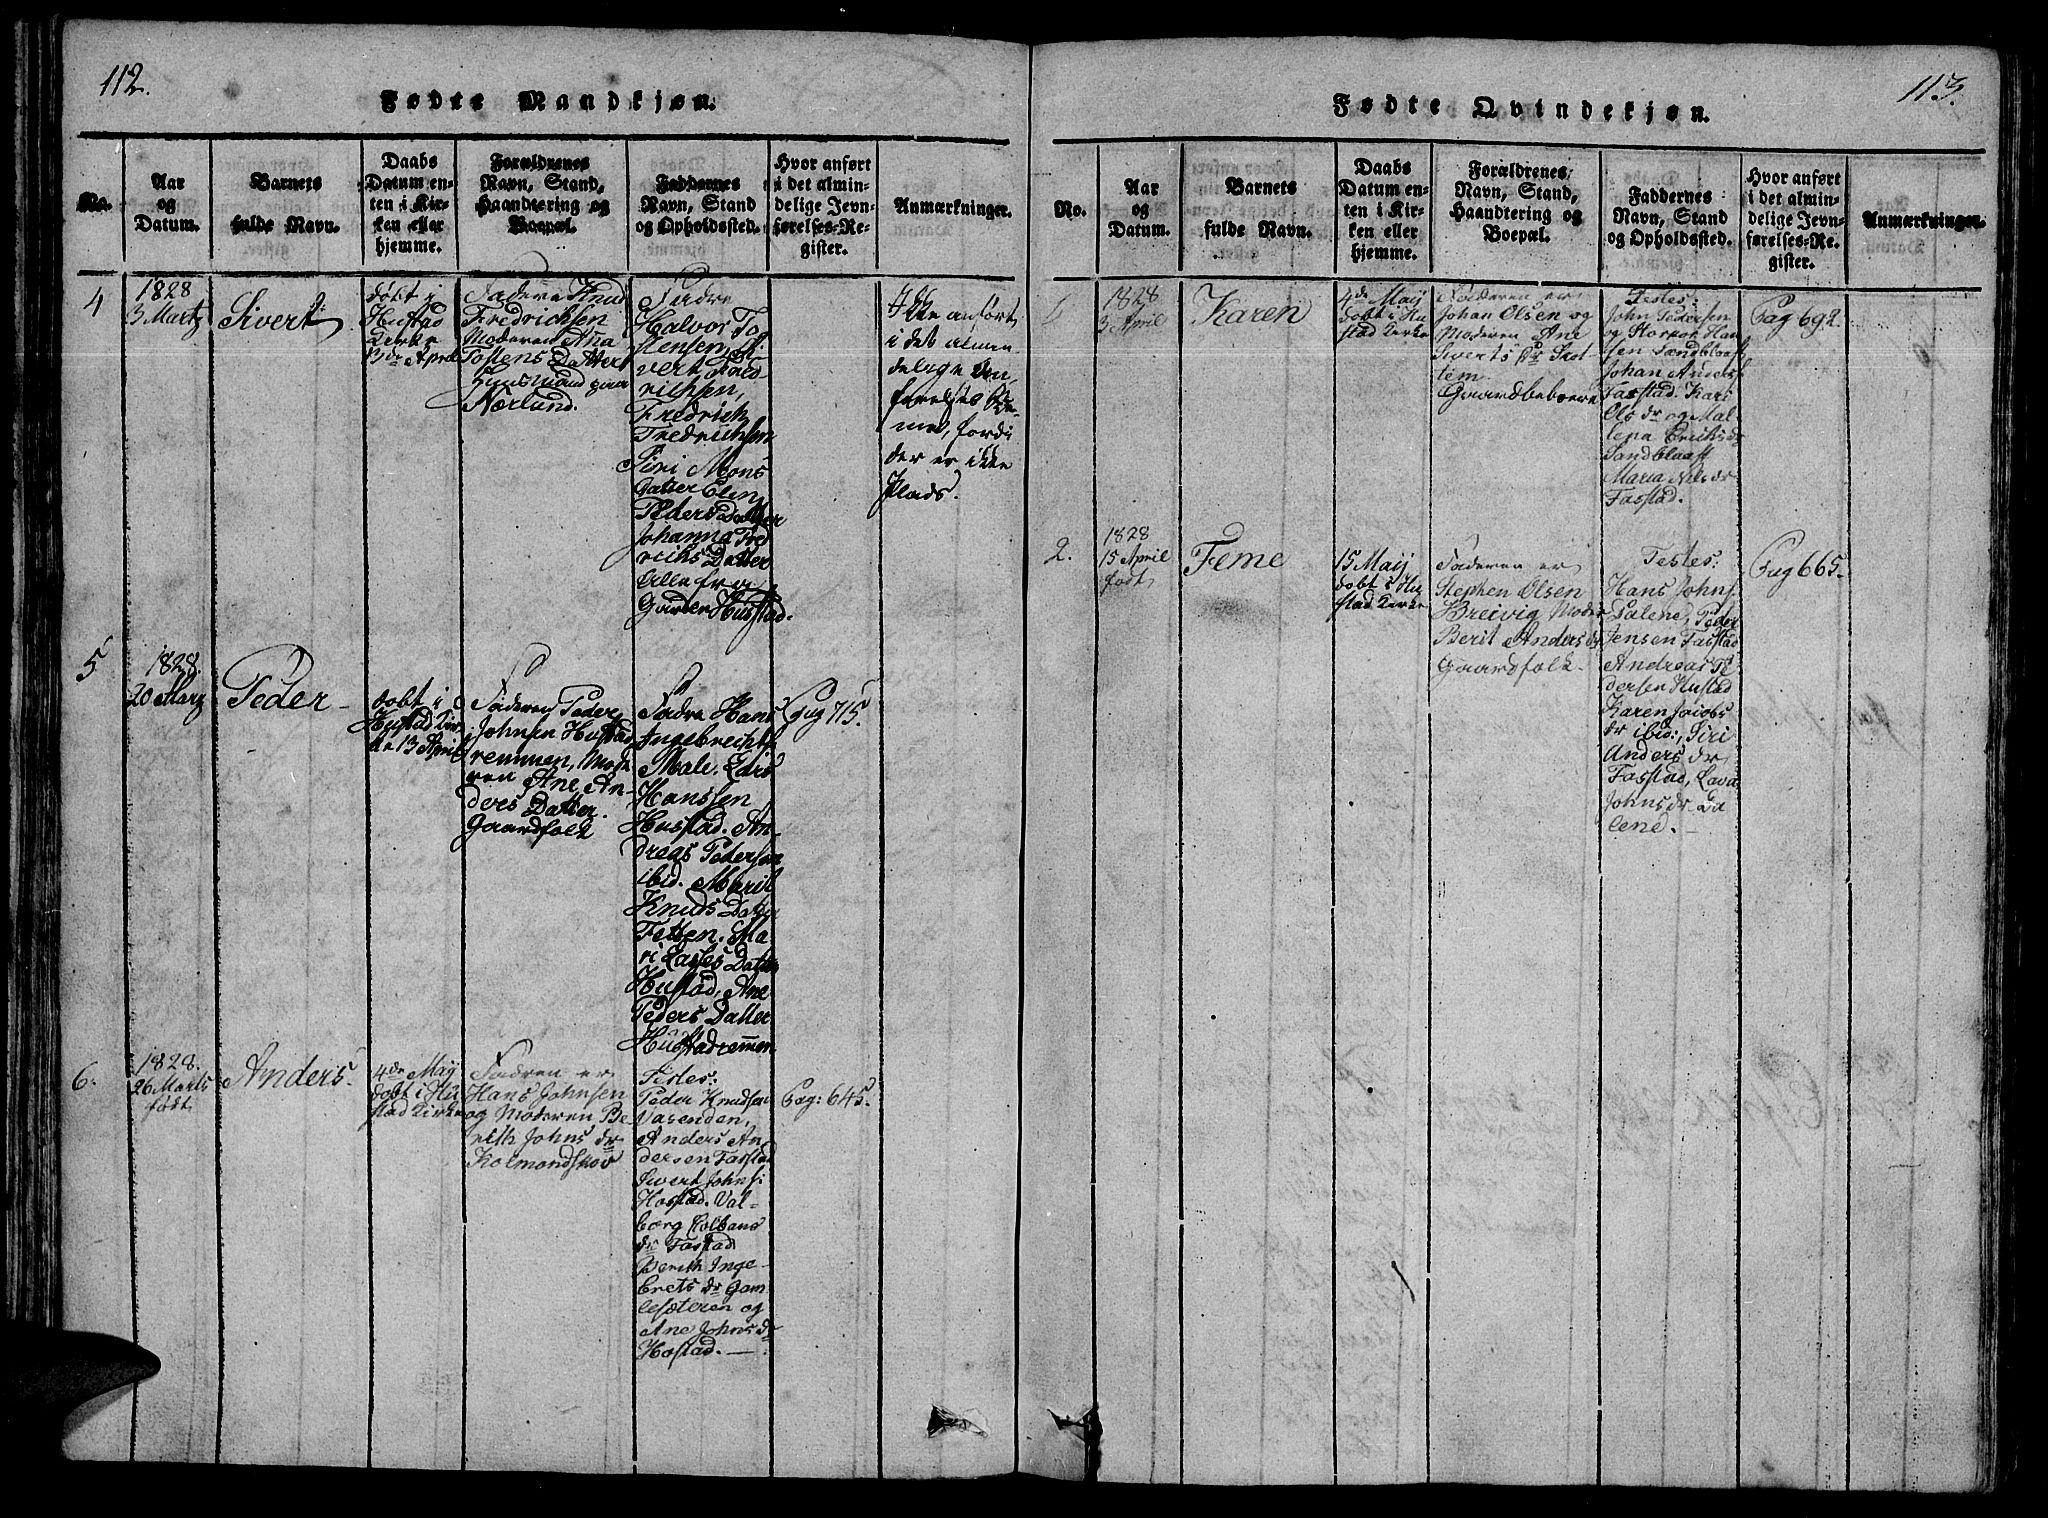 112.
Fødte Mandkjøn.
No.
Aar
og
Datum.
Barnets
fulde Navn.
Daabs
Datum en-
ten i Kir-
ken eller
hjemme.
Forældrenes
Navn, Stand,
Haandtering og
Boepæl.
Faddernes
Navn, Stand
og Opholdssted.
Hvor anført
i det almin-
delige Jevn-
førelses-Re-
gister.
Anmærkninger.
4
1828
3 Martz
Sivert
døbt i
Hustad
Kirke
13de April
Faderen Knud
Fredrichsen
Moderen Ana
Tostens Datter
Huusmand paa
Nærlund.
Fadre
Halvor To-
stensen, Si-
vert Fred-
richsen,
Fredrich
Fredrichsen
Siri Mons
Datter Elen
Peders Datter
Johanna Fred
richs Datter
Alle fra
Gorden Hustad.
Ikke anført
i det almin-
delige Jevn-
førelses
fordi
der er ikke
Plads.
5
1828.
20 Martz
Peder
dobt i
Hustad Kir-
ke 13 April
Faderen Peder
Johnsen Hustad
remmen, Mode
ren Ane An-
ders Datter.
Gaardfolk
Fadre Hans
Ingebrechts
Male, Lars
Hanssen
Hustad. An-
dreas Pedersen
ibid. Marit
Knuds Datter
Fetten. Ma-
ri Lasses Datter
Hustad, Ane
Peders Datter
Hustadremmen
Pag 715.
6.
1828.
26 Marts
født
Anders.
4de Maij
dobt i Hu
stad Kirke
Fadren er
Hans Johnsen
og Moderen Be
rith Johns dr
Kolmandskov
Testes:
Peder Knudsen
Vasenden,
Anders An
dersen Fastad
Sivert Johns:
Hostad. Val-
borg Kolbans
dr Fastad
Berith Inge-
brets dr Gam
lesæteren og
Ane Johns dr
Hostad.
Pag: 645.
113.
Fødte Qvindekjøn.
No.
Aar
og
Datum.
Barnets
fulde Navn.
Daabs
Datum en-
ten i Kir-
ken eller
hjemme.
Forældrenes
Navn, Stand,
Haandtering og
Boepæl.
Faddernes
Navn, Stand
og Opholdssted.
Hvor anført
i det almin-
delige Jevn-
førelses-Re-
gister.
Anmærkninger.
1
1828
3 April
Karen
4de Maij
dobt i Hu
stad Kirke
Faderen er
Johan Olsen og
Moderen Ane
Siverts Dr Slot-
tem
Gaardbeboere
Testes:
John Pedersen
og Han
sen Sandblaast
Johan Anders:
Fastad. Kari
Ols dr og Mal-
lena Erichs dr
Sandblaast
Maria Nils dr
Fastad.
Pag 692.
2.
1828
15 April
født
Feme
15 Maij
dobt i Hu
stad Kirke
Faderen er
Stephen Olsen
Breivig Moder
Berit Anders dr
Gaardfolk
Testes:
Hans Johns:
Dalene, Peder
Jensen Fastad
Andreas Pe
dersen Hustad
Karen Jacobs
dr ibid:, Siri
Anders dr
Fastad, Lava
Johns dr Da
lene.
Pag 665.